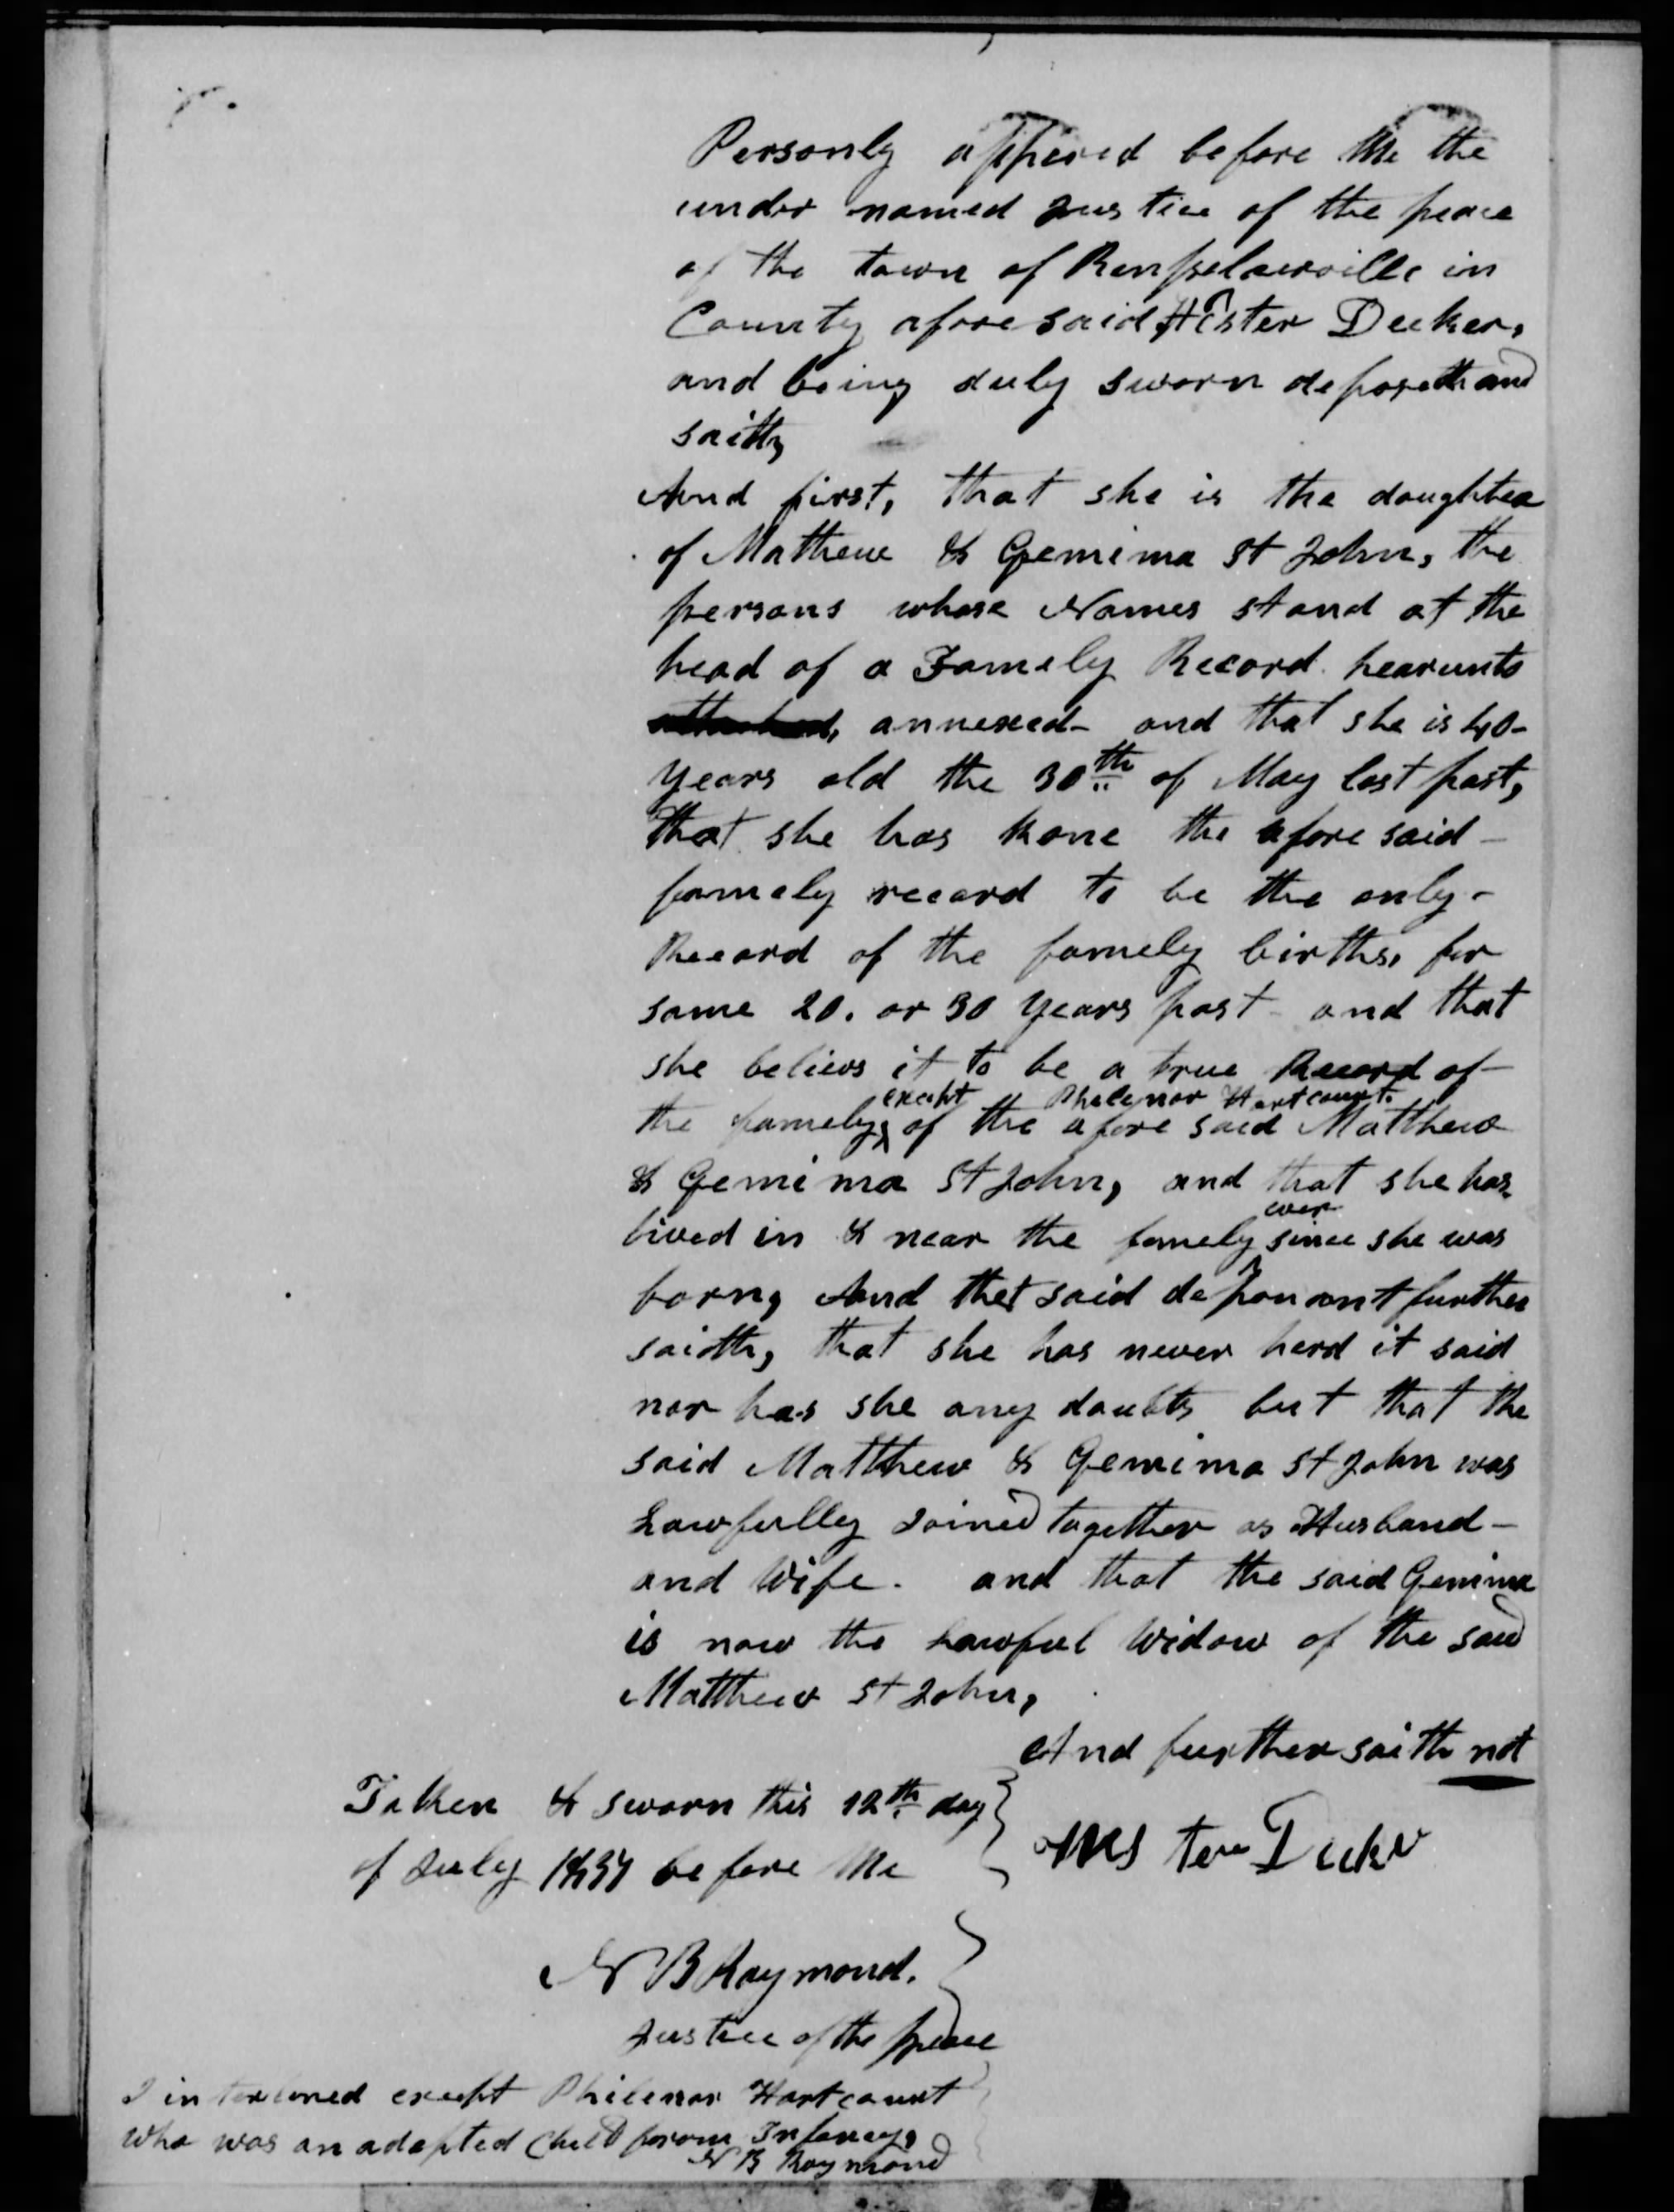 Personly appered before Me the
under named Justice of the peace
of the town of Rensselaerville in
County aforesaid, Hester Decker,
and being duly sworn deposeth and
saith,
And first, that she is the daughter
of Mathew & Gemima St John, the
persons whose Names stand at the
head of a Famely Record hearunto
annexed - and that she is 40 -
years old the 30th of May last past,
that she has kone the afore said -
famely record to be the only -
Record of the famely births, for
some 20. or 30 years past - and that
she believs it to be a true Record of -
except Philenor Hartcourt.
the famely, of the afore said Matthew
& Gemima St John, and that she has
ever
lived in & near the famely since she was
born, And that said deponant further
saith, that she has never herd it said
nor has she any doubts but that the
said Matthew & Gemima St John was
Lawfully Joined together as Husband -
and Wife. and that the said Gemima
is now the Lawful Widow of the said
Matthew St John,
And further saith not
Taken & sworn this 12th day
of July 1837 before Me
N B Raymond.
Justice of the peace
I interlined except Philenor Hartcourt
who was an adopted Child from Infancy,
N B Raymond